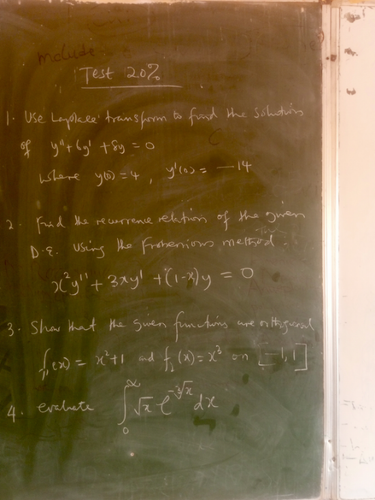 Test 20%
1. Use Laplace transform to find the solution
of y'' + 6y' + 8y = 0
where y(0) = 4, y'(0) = -14
2. Find the recurrence relation of the given
D.E. using the Frobenious method.
x²y'' + 3xy' + (1-x)y = 0
3. Show that the given functions are orthogonal
f₁(x) = x²+1 and f₂(x) = x³ on [-1, 1]
4. evaluate ∫₀^∞ √x e^(-³√x) dx